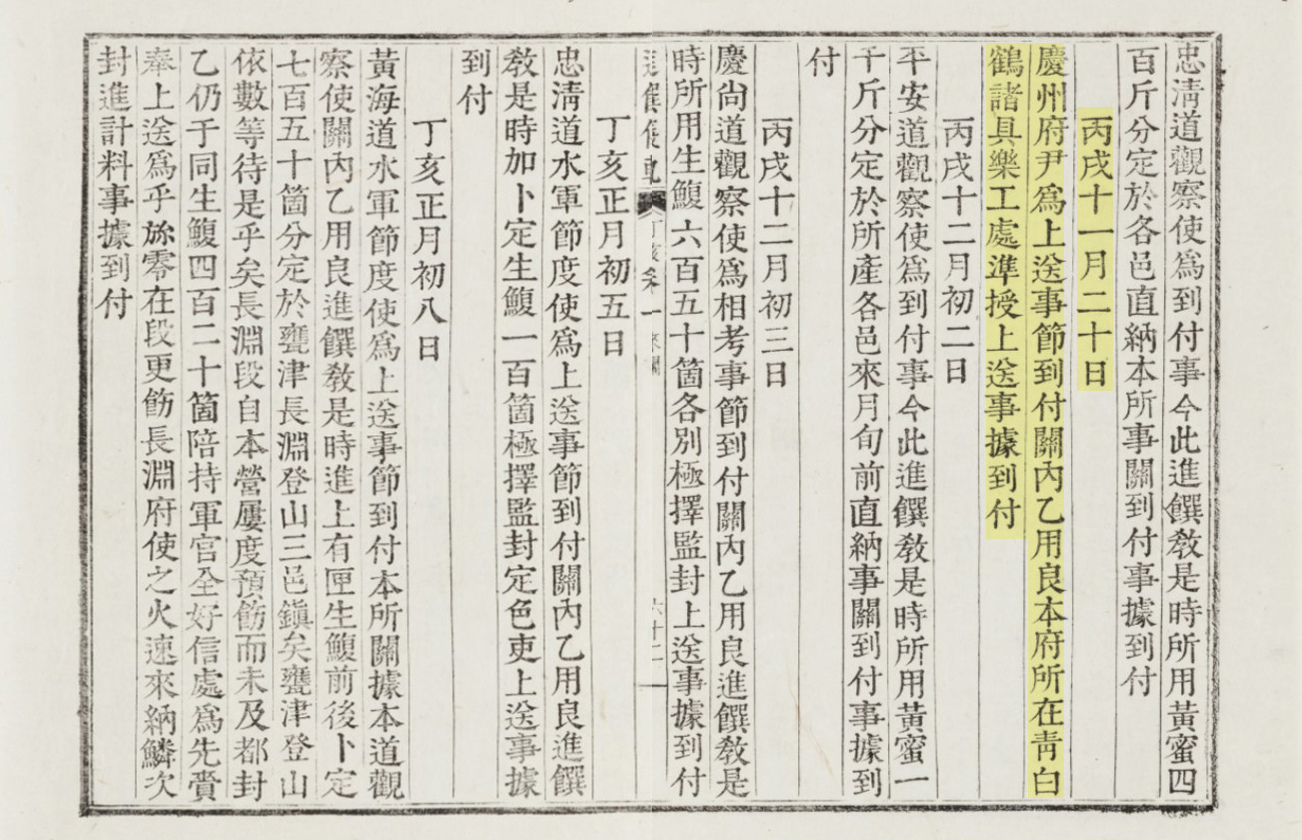 忠淸道觀察使爲到付事今此進饌敎是時所用黃蜜四
百斤分定於各邑直納本所事關到付事據到付
丙戌十一月二十日
慶州府尹爲上送事節到付關內乙用良本府所在靑白
鶴諸具樂工處準授上送事據到付
丙戌十二月初二日
平安道觀察使爲到付事今此進饌敎是時所用黃蜜一
千斤分定於所產各邑來月旬前直納事關到付事據到
付
丙戌十二月初三日
慶尙道觀察使爲相考事節到付關內乙用良進饌敎是
時所用生鰒六百五十箇各別極擇監封上送事據到付
進饌儀軌 丁亥 卷一 來關 六十二
丁亥正月初五日
忠淸道水軍節度使爲上送事節到付關內乙用良進饌
敎是時加卜定生鰒一百箇極擇監封定色吏上送事據
到付
丁亥正月初八日
黃海道水軍節度使爲上送事節到付本所關據本道觀
察使關內乙用良進饌敎是時進上有匣生鰒前後卜定
七百五十箇分定於甕津長淵登山三邑鎭矣甕津登山
依數等待是乎矣長淵段自本營屢度預飭而未及都封
乙仍于同生鰒四百二十箇陪持軍官全好信處爲先賫
奉上送爲乎旀零在段更飭長淵府使之火速來納鱗次
封進計料事據到付